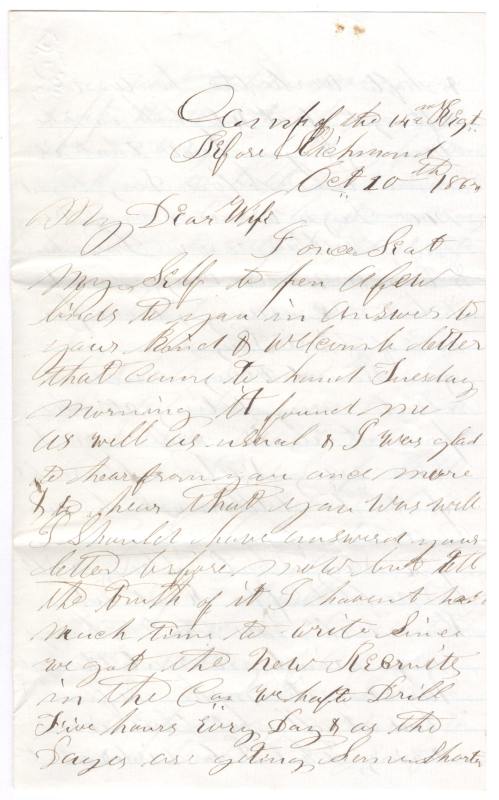 Camp of the 14th Regt.
Before Richmond
Oct 20th 1864
My Dear Wife
I once Seat
My Self to pen A few
linds to you in Answer to
your Kind & Welcomb letter
that Came to hand Tuesday
Morning It found me
as well as usual & I was glad
to hear from you once more
& to hear that you Was well
I Should have answerd your
letter before now but tell
the truth of it I havent had
Much time to write Since
we got the New Recruits
in the Co. We hafto Drill
Five hours Evry Day & as the
Dayes are geting Some Shorter